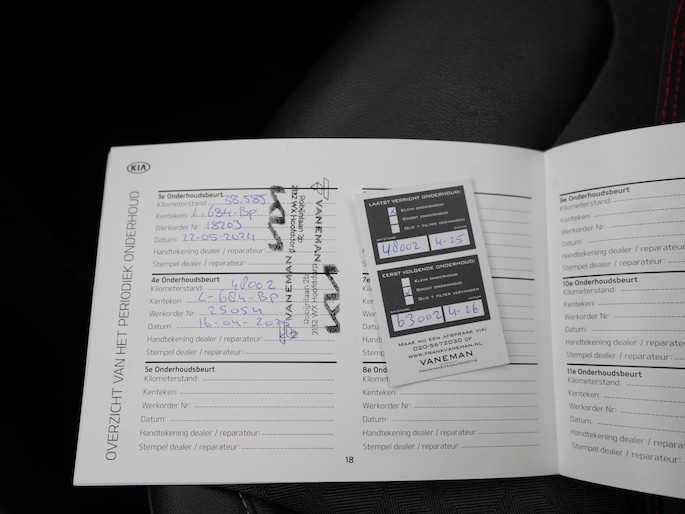 KIA
OVERZICHT VAN HET PERIODIEK ONDERHOUD
3e Onderhoudsbeurt
Kilometerstand:
Kenteken: L-684-BP
Werkorder Nr: 18203
Datum: 22-05-2024
Handtekening dealer / reparateur:
Stempel dealer / reparateur:
4e Onderhoudsbeurt
Kilometerstand: 48002
Kenteken: L-684-BP
Werkorder Nr: 25054
Datum: 16-04-
Handtekening dealer / reparateur:
Stempel dealer / reparateur:
5e Onderhoudsbeurt
Kilometerstand:
Kenteken:
Werkorder Nr:
Datum:
Handtekening dealer / reparateur:
Stempel dealer / reparateur:
VANEMAN
2132 WX Hoofddorp
VANEMAN
2132 WX Hoofddorp
LAATST VERRICHT ONDERHOUD:
KLEIN ONDERHOUD
GROOT ONDERHOUD
OLIE + FILTER VERVANGEN
48002 4-25
EERST VOLGENDE ONDERHOUD:
KLEIN ONDERHOUD
GROOT ONDERHOUD
OLIE + FILTER VERVANGEN
63002 4-26
MAAK NU EEN AFSPRAAK VIA:
020-5672030 OF
WWW.FRANKVANEMAN.NL
VANEMAN
8e
Kilometerstand:
Kenteken:
Werkorder Nr:
Datum:
Handtekening dealer / reparateur:
Stempel dealer / reparateur:
18
9e Onderhoudsbeurt
Kilometerstand:
Kenteken:
Werkorder Nr:
Datum:
Handtekening dealer / reparateur
Stempel dealer / reparateur:
10e Onderhoudsbeurt
Kilometerstand:
Kenteken:
Werkorder Nr:
Datum:
Handtekening dealer / repara
Stempel dealer / reparateur:
11e Onderhoudsbeurt
Kilometerstand:
Kenteken:
Werkorder Nr:
Datum:
Handtekening dealer / re
Stempel dealer / reparateur